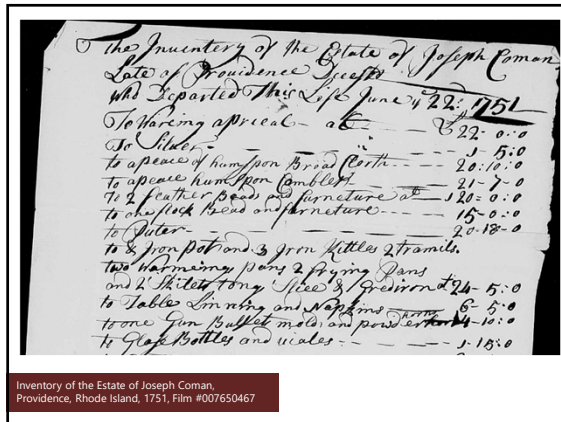 The Inventery of the Estate of Joseph Coman
Late of Providence
who Departed This Life June ye 22: 1751
To Waring aprieal – at £22-0:0
To Silver 1-5:0
to apeace of humspon Broad Cloth 20:10:0
to apeace humspon Camblet 21-7-0
To 2 feather Beads and furneture at 120=0:0
to one flock Bead and furneture 15-0:0
to Puter 20-18-0
to & Iron pot and 3 Iron Kittles 2 tramils
two Warmeing pans 2 frying Pans
and 2 Skilets tong Slice & Grediron at 24-5:0
to Table Linning and Napkins 6-5:0
to one Gun Bullet mold and powder horn 4-10:0
to Glase Bottles and viales 1-15:0
Inventory of the Estate of Joseph Coman,
Providence, Rhode Island, 1751, Film #007650467